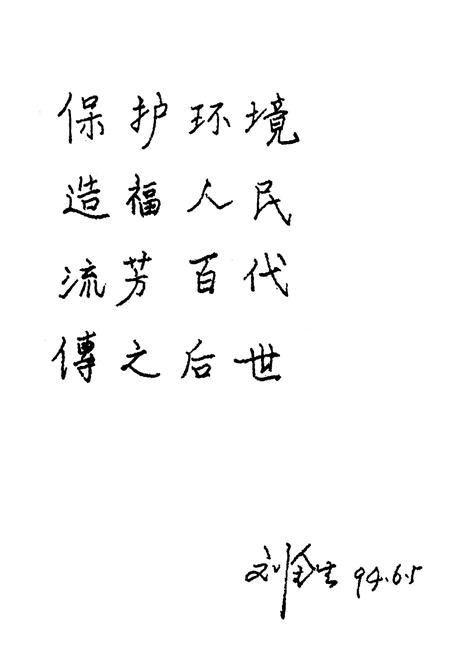 保护环境
造福人民
流芳百代
傳之后世
刘金生 94.6.5